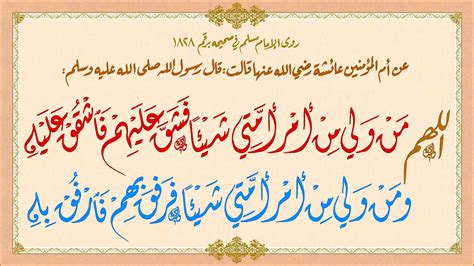 روى الإمام مسلم في صحيحه برقم ١٨٢٨
عن أم المؤمنين عائشة رضي الله عنها قالت: قال رسول الله صلى الله عليه وسلم:
اللهم مَنْ وَلِيَ مِنْ أَمْرِ أُمَّتِي شَيْئًا فَشَقَّ عَلَيْهِمْ فَاشْقُقْ عَلَيْهِ
وَمَنْ وَلِيَ مِنْ أَمْرِ أُمَّتِي شَيْئًا فَرَفَقَ بِهِمْ فَارْفُقْ بِهِ